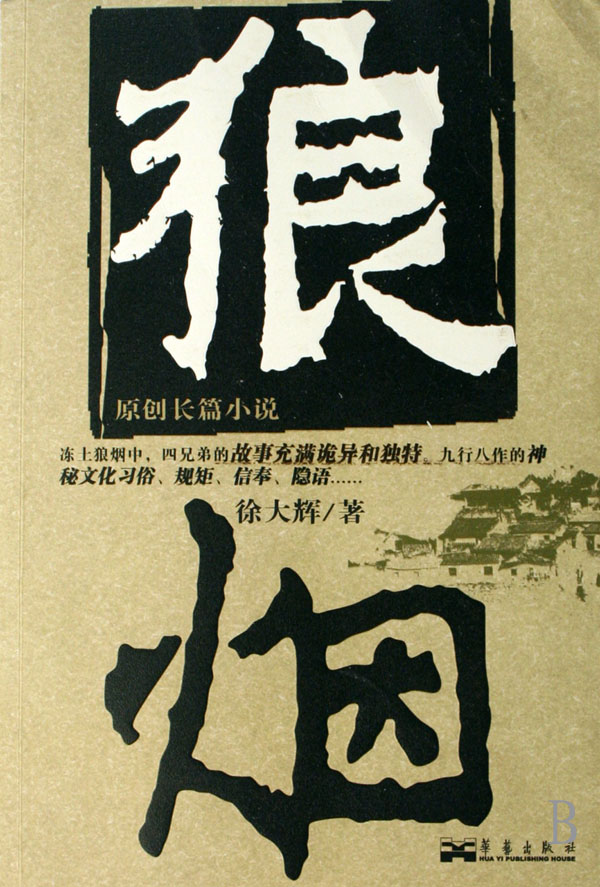 狼
原创长篇小说
冻土狼烟中，四兄弟的故事充满诡异和独特。九行八作的神
秘文化习俗、规矩、信奉、隐语……
徐大辉/著
烟
B
華藝出版社
HUA YI PUBLISHING HOUSE